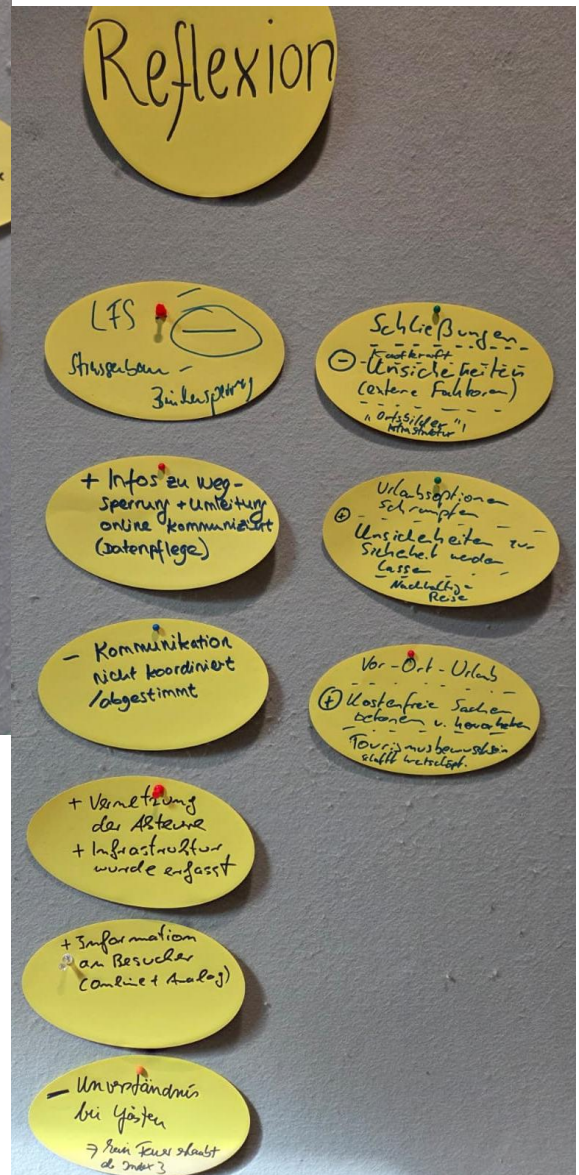 Reflexion
LFS
-
Strassenbau -
+ Infos zu Weg-
sperrung + Umleitung
online kommuniziert
(Datenpflege)
- Kommunikation
nicht koordiniert
/abgestimmt
+ Vernetzung
der Akteure
+ Infrastruktur
wurde erfasst
+ Information
an Besucher
(online + Analog)
- Unverständnis
bei Gästen
→ kein Feuer erlaubt
ab Index 3
Schließungen
- Unsicherheiten
(externe Faktoren)
"Ortsbilder"
Urlaubsoptionen
schrumpfen
+ Unsicherheiten zur
Sicherheit werden
lassen
Nachhaltige
Reise
Vor-Ort-Urlaub
+ Kostenfreie Sachen
betonen u. hervorheben
Tourismusbewusstsein